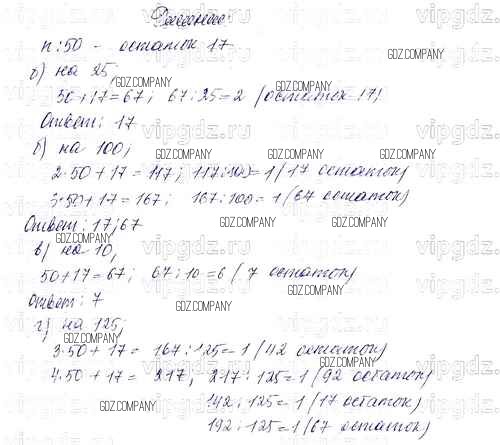 Решение:
n:50 - остаток 17
б) на 25;
50+17=67; 67:25=2 (остаток 17)
Ответ: 17
б) на 100;
2·50+17=117; 117:100=1 (17 остаток)
3·50+17=167; 167:100=1 (67 остаток)
Ответ: 17; 67
в) на 10;
50+17=67; 67:10=6 (7 остаток)
Ответ: 7
г) на 125;
3·50+17= 167:125=1 (42 остаток)
4·50+17= 217; 217:125=1 (92 остаток)
142:125=1 (17 остаток)
192:125=1 (67 остаток)
vipgdz.ru
GDZ.COMPANY